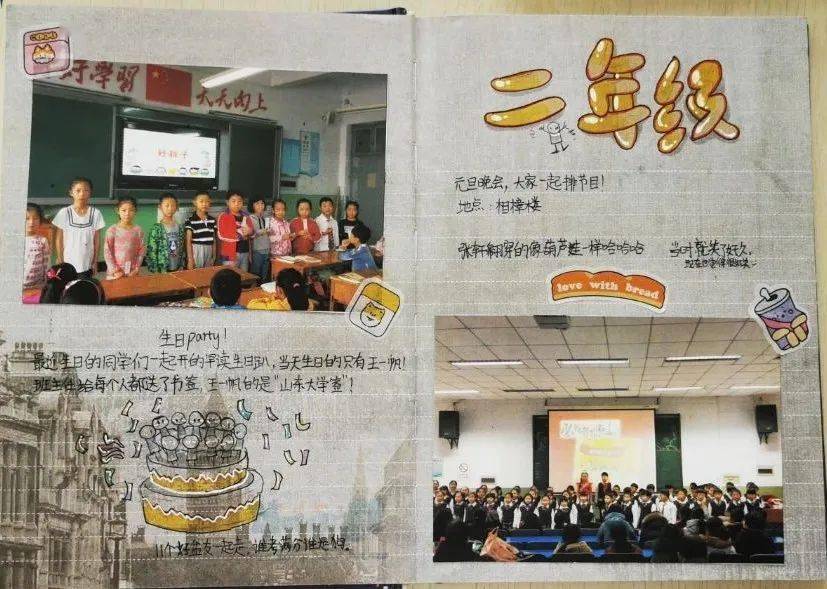 好学習
天天向上
好孩子
生日party!
最近生日的同学们一起开的早读生日趴,当天生日的只有王一帆!
班主任给每个人都送了书签,王一帆的是“山东大学堂”!
11个好盆友一起走,谁考满分谁是狗。
二年级
元旦晚会,大家一起排节目!
地点:相樟楼
张轩翩穿的像葫芦娃一样哈哈哈
当时就笑了好久,
love with bread